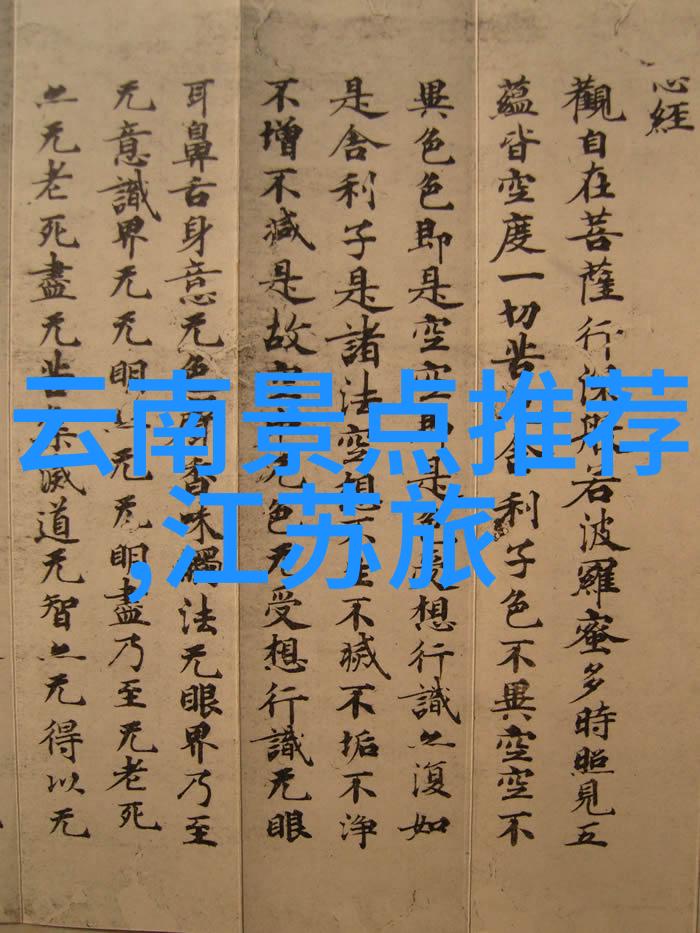 心経
觀自在菩薩行深般若波羅蜜多時照見五
蘊皆空度一切苦舍利子色不異空空不
異色色即是空空即是色受想行識亦復如
是舍利子是諸法空想不生不滅不垢不浄
不增不減是故空无色无受想行識无眼
耳鼻舌身意无色香味觸法无眼界乃至
无意識界无无明亦无无明盡乃至无老死
亦无老死盡无苦集滅道无智亦无得以无
云南景点推荐
,江苏旅